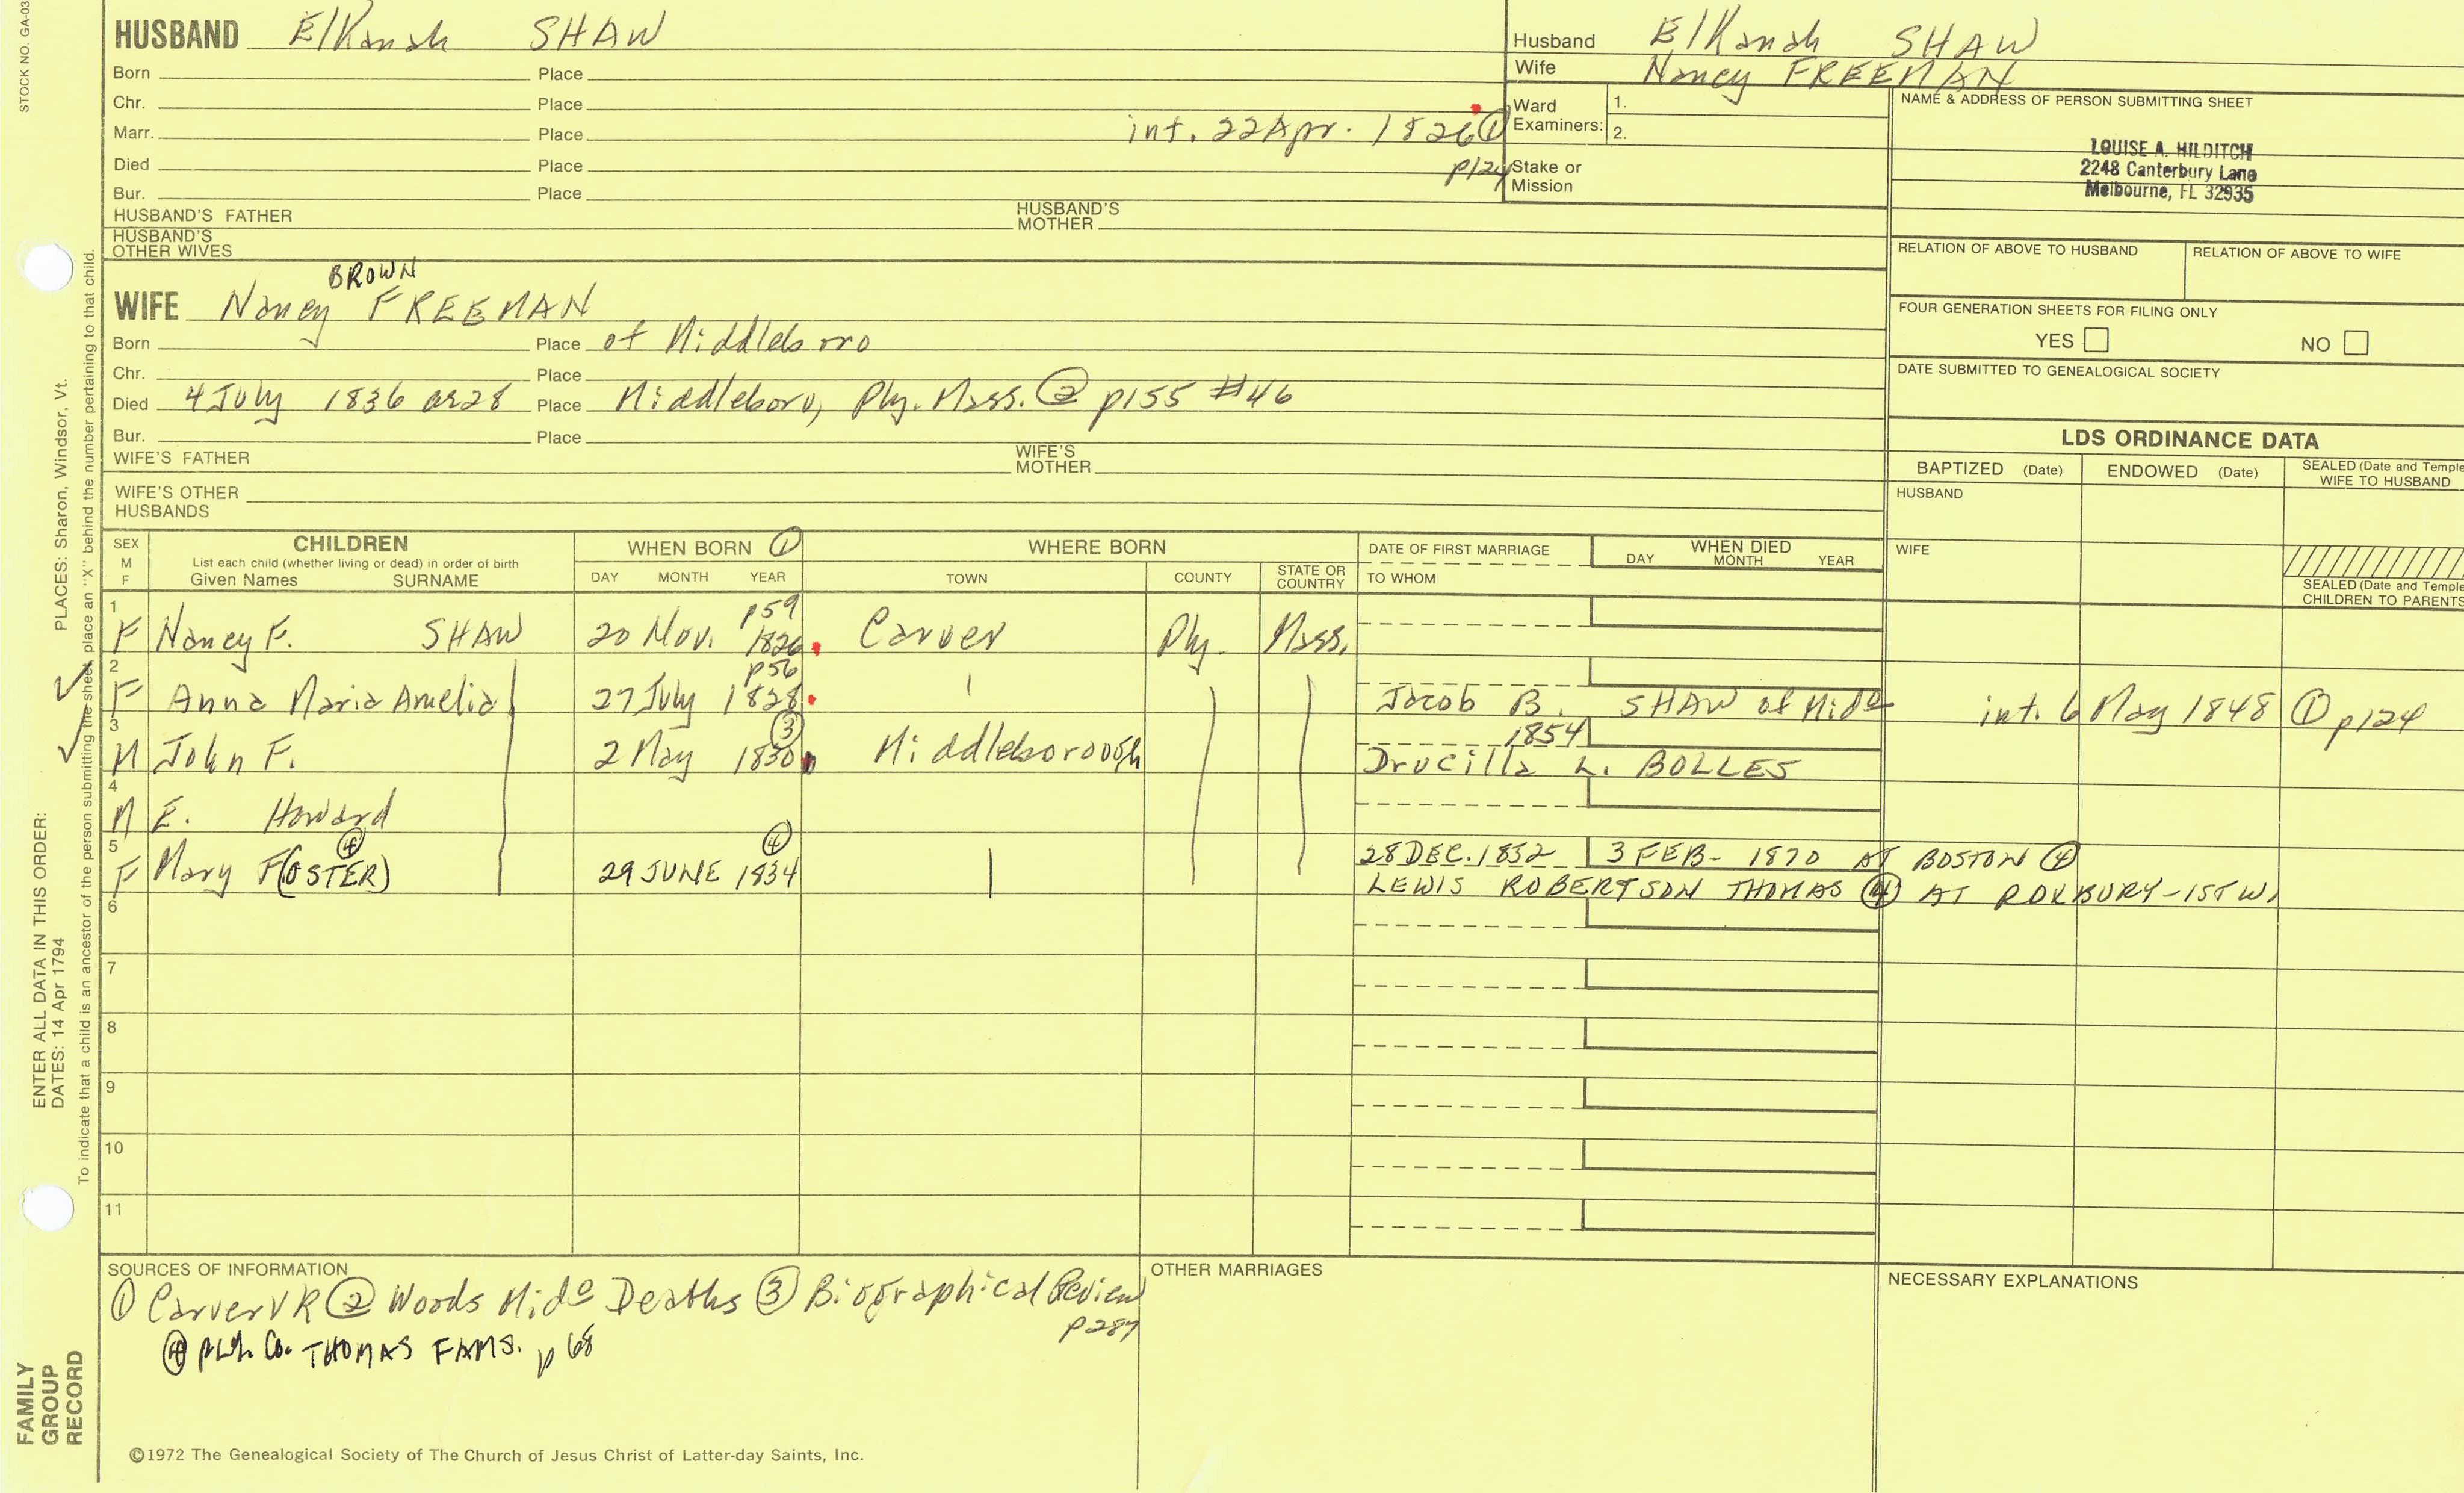 STOCK NO. GA-03
HUSBAND Elkanah SHAW
Born Place
Chr. Place
Marr. Place int. 22 Apr. 1826 ① p124
Died Place
Bur. Place
HUSBAND'S FATHER HUSBAND'S MOTHER
HUSBAND'S OTHER WIVES
Husband Elkanah SHAW
Wife Nancy FREEMAN
Ward Examiners: 1.
2.
Stake or Mission
NAME & ADDRESS OF PERSON SUBMITTING SHEET
LOUISE A. HILDITCH
2248 Canterbury Lane
Melbourne, FL 32935
RELATION OF ABOVE TO HUSBAND RELATION OF ABOVE TO WIFE
FOUR GENERATION SHEETS FOR FILING ONLY
YES NO
DATE SUBMITTED TO GENEALOGICAL SOCIETY
BROWN
WIFE Nancy FREEMAN
Born Place of Middleboro
Chr. Place
Died 4 July 1836 ae 28 Place Middleboro, Ply. Mass. ② p155 #46
Bur. Place
WIFE'S FATHER WIFE'S MOTHER
WIFE'S OTHER HUSBANDS
LDS ORDINANCE DATA
BAPTIZED (Date) ENDOWED (Date) SEALED (Date and Temple
WIFE TO HUSBAND
HUSBAND
WIFE
SEALED (Date and Temple
CHILDREN TO PARENTS
SEX M F CHILDREN WHEN BORN ① WHERE BORN DATE OF FIRST MARRIAGE WHEN DIED
List each child (whether living or dead) in order of birth
Given Names SURNAME DAY MONTH YEAR TOWN COUNTY STATE OR COUNTRY TO WHOM DAY MONTH YEAR
p59
1 F Nancy F. SHAW 20 Nov. 1826 Carver Ply. Mass.
p56
2 F Anna Maria Amelia 27 July 1828 Jacob B. SHAW of Mid° int. 6 May 1848 ① p124
③ 1854
3 M John F. 2 May 1830 Middleborough Drucilla L. BOLLES
4 M E. Howard
④ ④ 28 DEC. 1852 3 FEB- 1870 AT BOSTON ④
5 F Mary F(OSTER) 29 JUNE 1834 LEWIS ROBERTSON THOMAS ④ AT ROXBURY-1ST W.
6
7
8
9
10
11
SOURCES OF INFORMATION
① Carver VR ② Woods Mid° Deaths ③ Biographical Review p287
④ PLY. Co. THOMAS FAMS. p 68
OTHER MARRIAGES
NECESSARY EXPLANATIONS
©1972 The Genealogical Society of The Church of Jesus Christ of Latter-day Saints, Inc.
ENTER ALL DATA IN THIS ORDER:
DATES: 14 Apr 1794 PLACES: Sharon, Windsor, Vt.
To indicate that a child is an ancestor of the person submitting the sheet, place an "X" behind the number pertaining to that child.
FAMILY GROUP RECORD